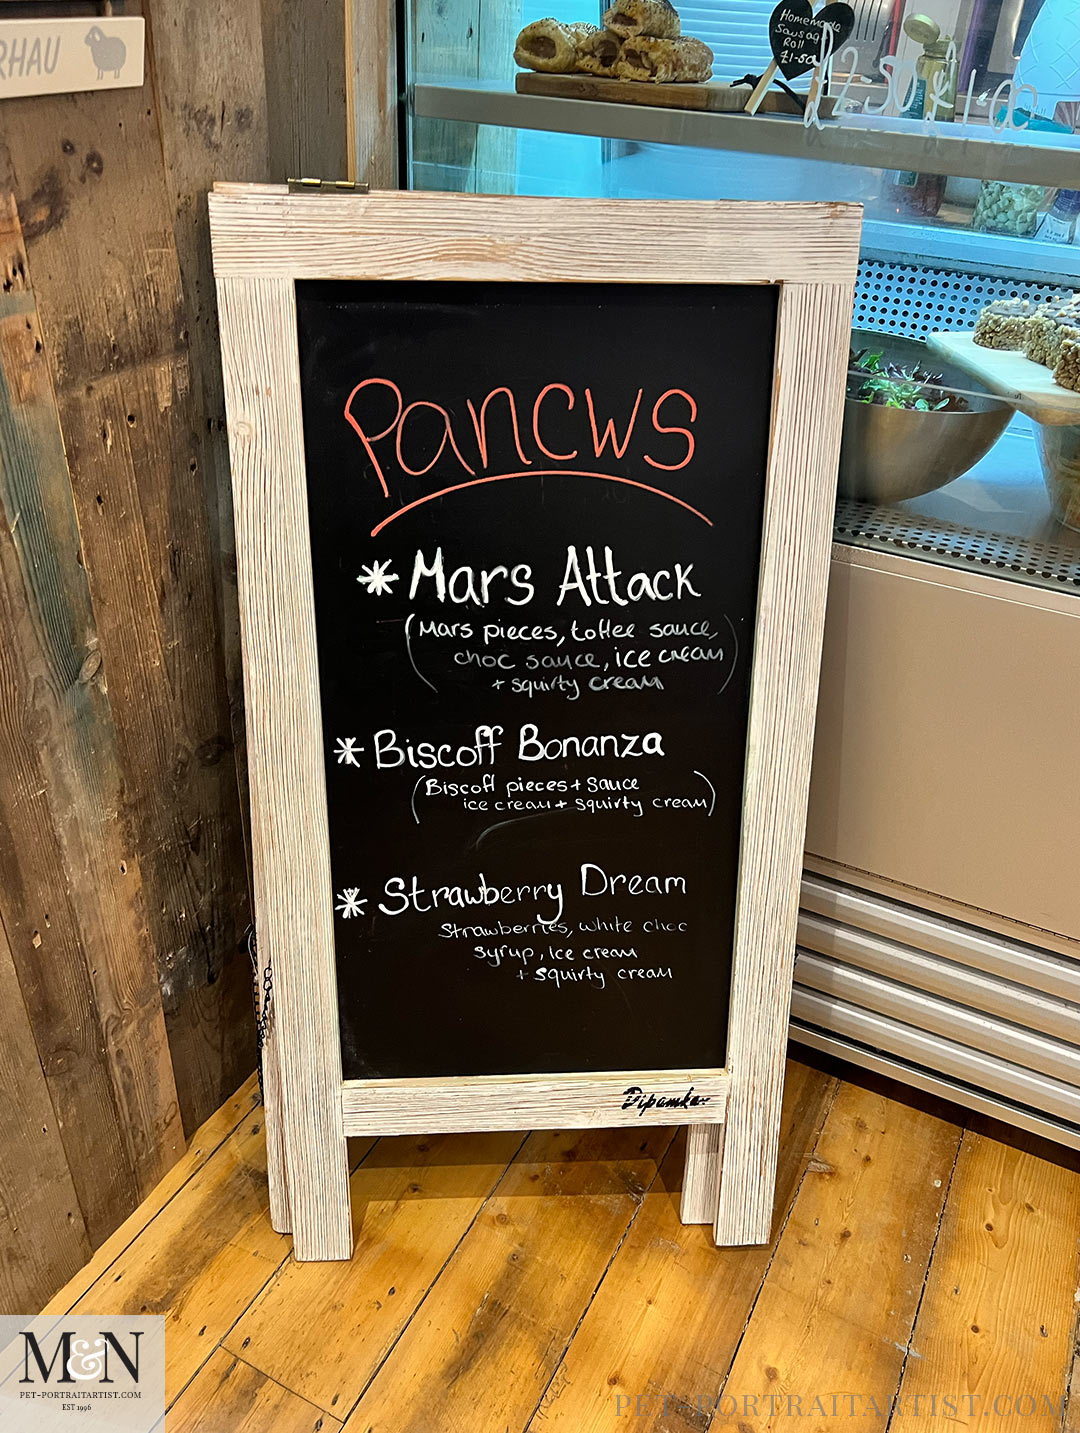 RHAU
Homemade
Sausage
Roll
£1-50
Pancws
* Mars Attack
(Mars pieces, toffee sauce,
choc sauce, ice cream
+ squirty cream)
* Biscoff Bonanza
(Biscoff pieces + sauce
ice cream + squirty cream)
* Strawberry Dream
Strawberries, white choc
syrup, Ice cream
+ squirty cream
Dipamkar
M&N
PET-PORTRAITARTIST.COM
EST 1996
PET-PORTRAITARTIST.COM